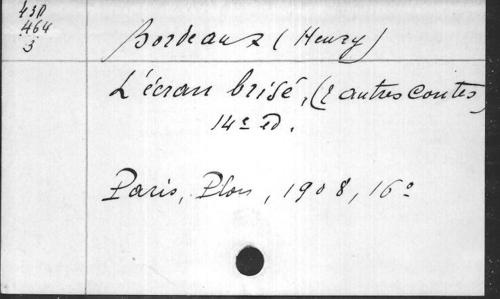 43D
464
3
Bordeaux (Henry)
L'écran brisé, (& autres contes)
14e ed.
Paris, Plon, 1908, 16°